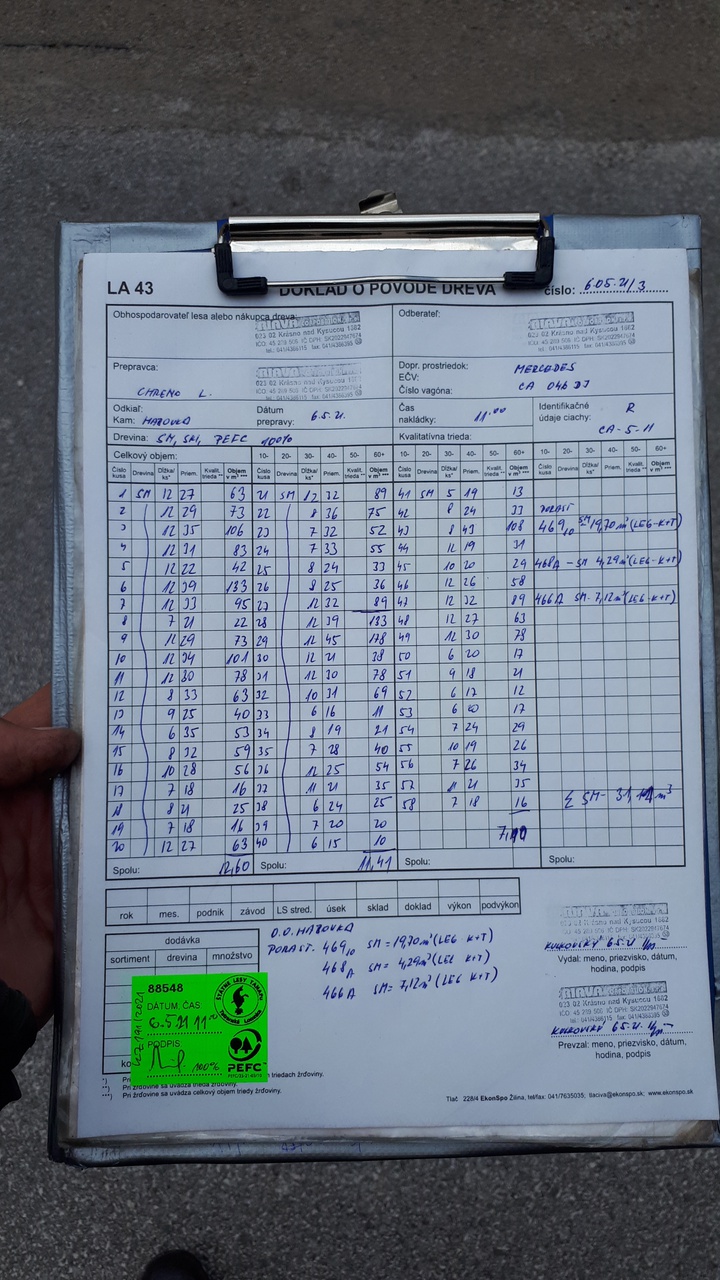 LA 43
DOKLAD O PÔVODE DREVA
číslo: 605.21/3
Obhospodarovateľ lesa alebo nákupca dreva:
023 02 Krásno nad Kysucou 1682
Odberateľ:
023 02 Krásno nad Kysucou 1682
Prepravca:
023 02 Krásno nad Kysucou 1682
L.
Dopr. prostriedok: MERCEDES
EČV:
Číslo vagóna: CA 046 DJ
Odkiaľ:
Kam: HÁJOVKA
Dátum prepravy: 6.5.21.
Čas nakládky: 11.00
Identifikačné údaje ciachy: R CA-5-11
Drevina: SM, SKL, PEFC 100%
Kvalitatívna trieda:
Celkový objem: 10- 20- 30- 40- 50- 60+ 10- 20- 30- 40- 50- 60+
Číslo kusa Drevina Dĺžka/ks* Priem. Kvalit. trieda ** Objem v m³ ***
1 SM 12 27 63 21 SM 12 32 89 41 SM 5 19 13
2 12 29 73 22 8 36 75 42 8 24 33 PORAST
3 12 35 106 23 7 32 52 43 8 43 108 469 10 SM 19,70 m³ (LE6-K+T)
4 12 31 83 24 7 33 55 44 12 19 31
5 12 22 42 25 8 24 33 45 10 20 29 468A - SM 4,29 m³ (LE6-K+T)
6 12 39 133 26 8 25 36 46 12 26 58
7 12 33 95 27 12 32 89 47 12 32 89 466A SM-7,12 m³ (LE6-K+T)
8 7 21 22 28 12 39 133 48 12 27 63
9 12 29 73 29 12 45 178 49 12 30 78
10 12 34 101 30 12 21 38 50 6 20 17
11 12 30 78 31 12 30 78 51 9 18 21
12 8 33 63 32 10 31 69 52 6 17 12
13 9 25 40 33 6 16 11 53 6 20 17
14 6 35 53 34 8 19 21 54 7 24 29
15 8 32 59 35 7 28 40 55 10 19 26
16 10 28 56 36 12 25 54 56 7 26 34
17 7 18 16 37 11 21 35 57 11 21 35
18 8 21 25 38 6 24 25 58 7 18 16 Σ SM-
19 7 18 16 39 7 20 20
20 12 27 63 40 6 15 10
Spolu: 12,60 Spolu: 11,41 Spolu: Spolu:
rok mes. podnik závod LS stred. úsek sklad doklad výkon podvýkon
dodávka
sortiment drevina množstvo
O.O. HÁJOVKA
PORAST. 469 10 SM = 19,70 m³ (LE6 K+T)
468 A SM = 4,29 m³ (LE6 K+T)
466 A SM = 7,12 m³ (LE6 K+T)
Vydal: meno, priezvisko, dátum, hodina, podpis
023 02 Krásno nad Kysucou 1682
Prevzal: meno, priezvisko, dátum, hodina, podpis
88548
DÁTUM, ČAS
6.5.21 11
PODPIS
100%
ŠTÁTNE LESY TANAPU
PEFC
triedach žrďoviny.
Pri žrďovine sa uvádza trieda žrďoviny.
Pri žrďovine sa uvádza celkový objem triedy žrďoviny.
Tlač 228/4 EkonSpo Žilina, tel/fax: 041/7635035; tlaciva@ekonspo.sk; www.ekonspo.sk